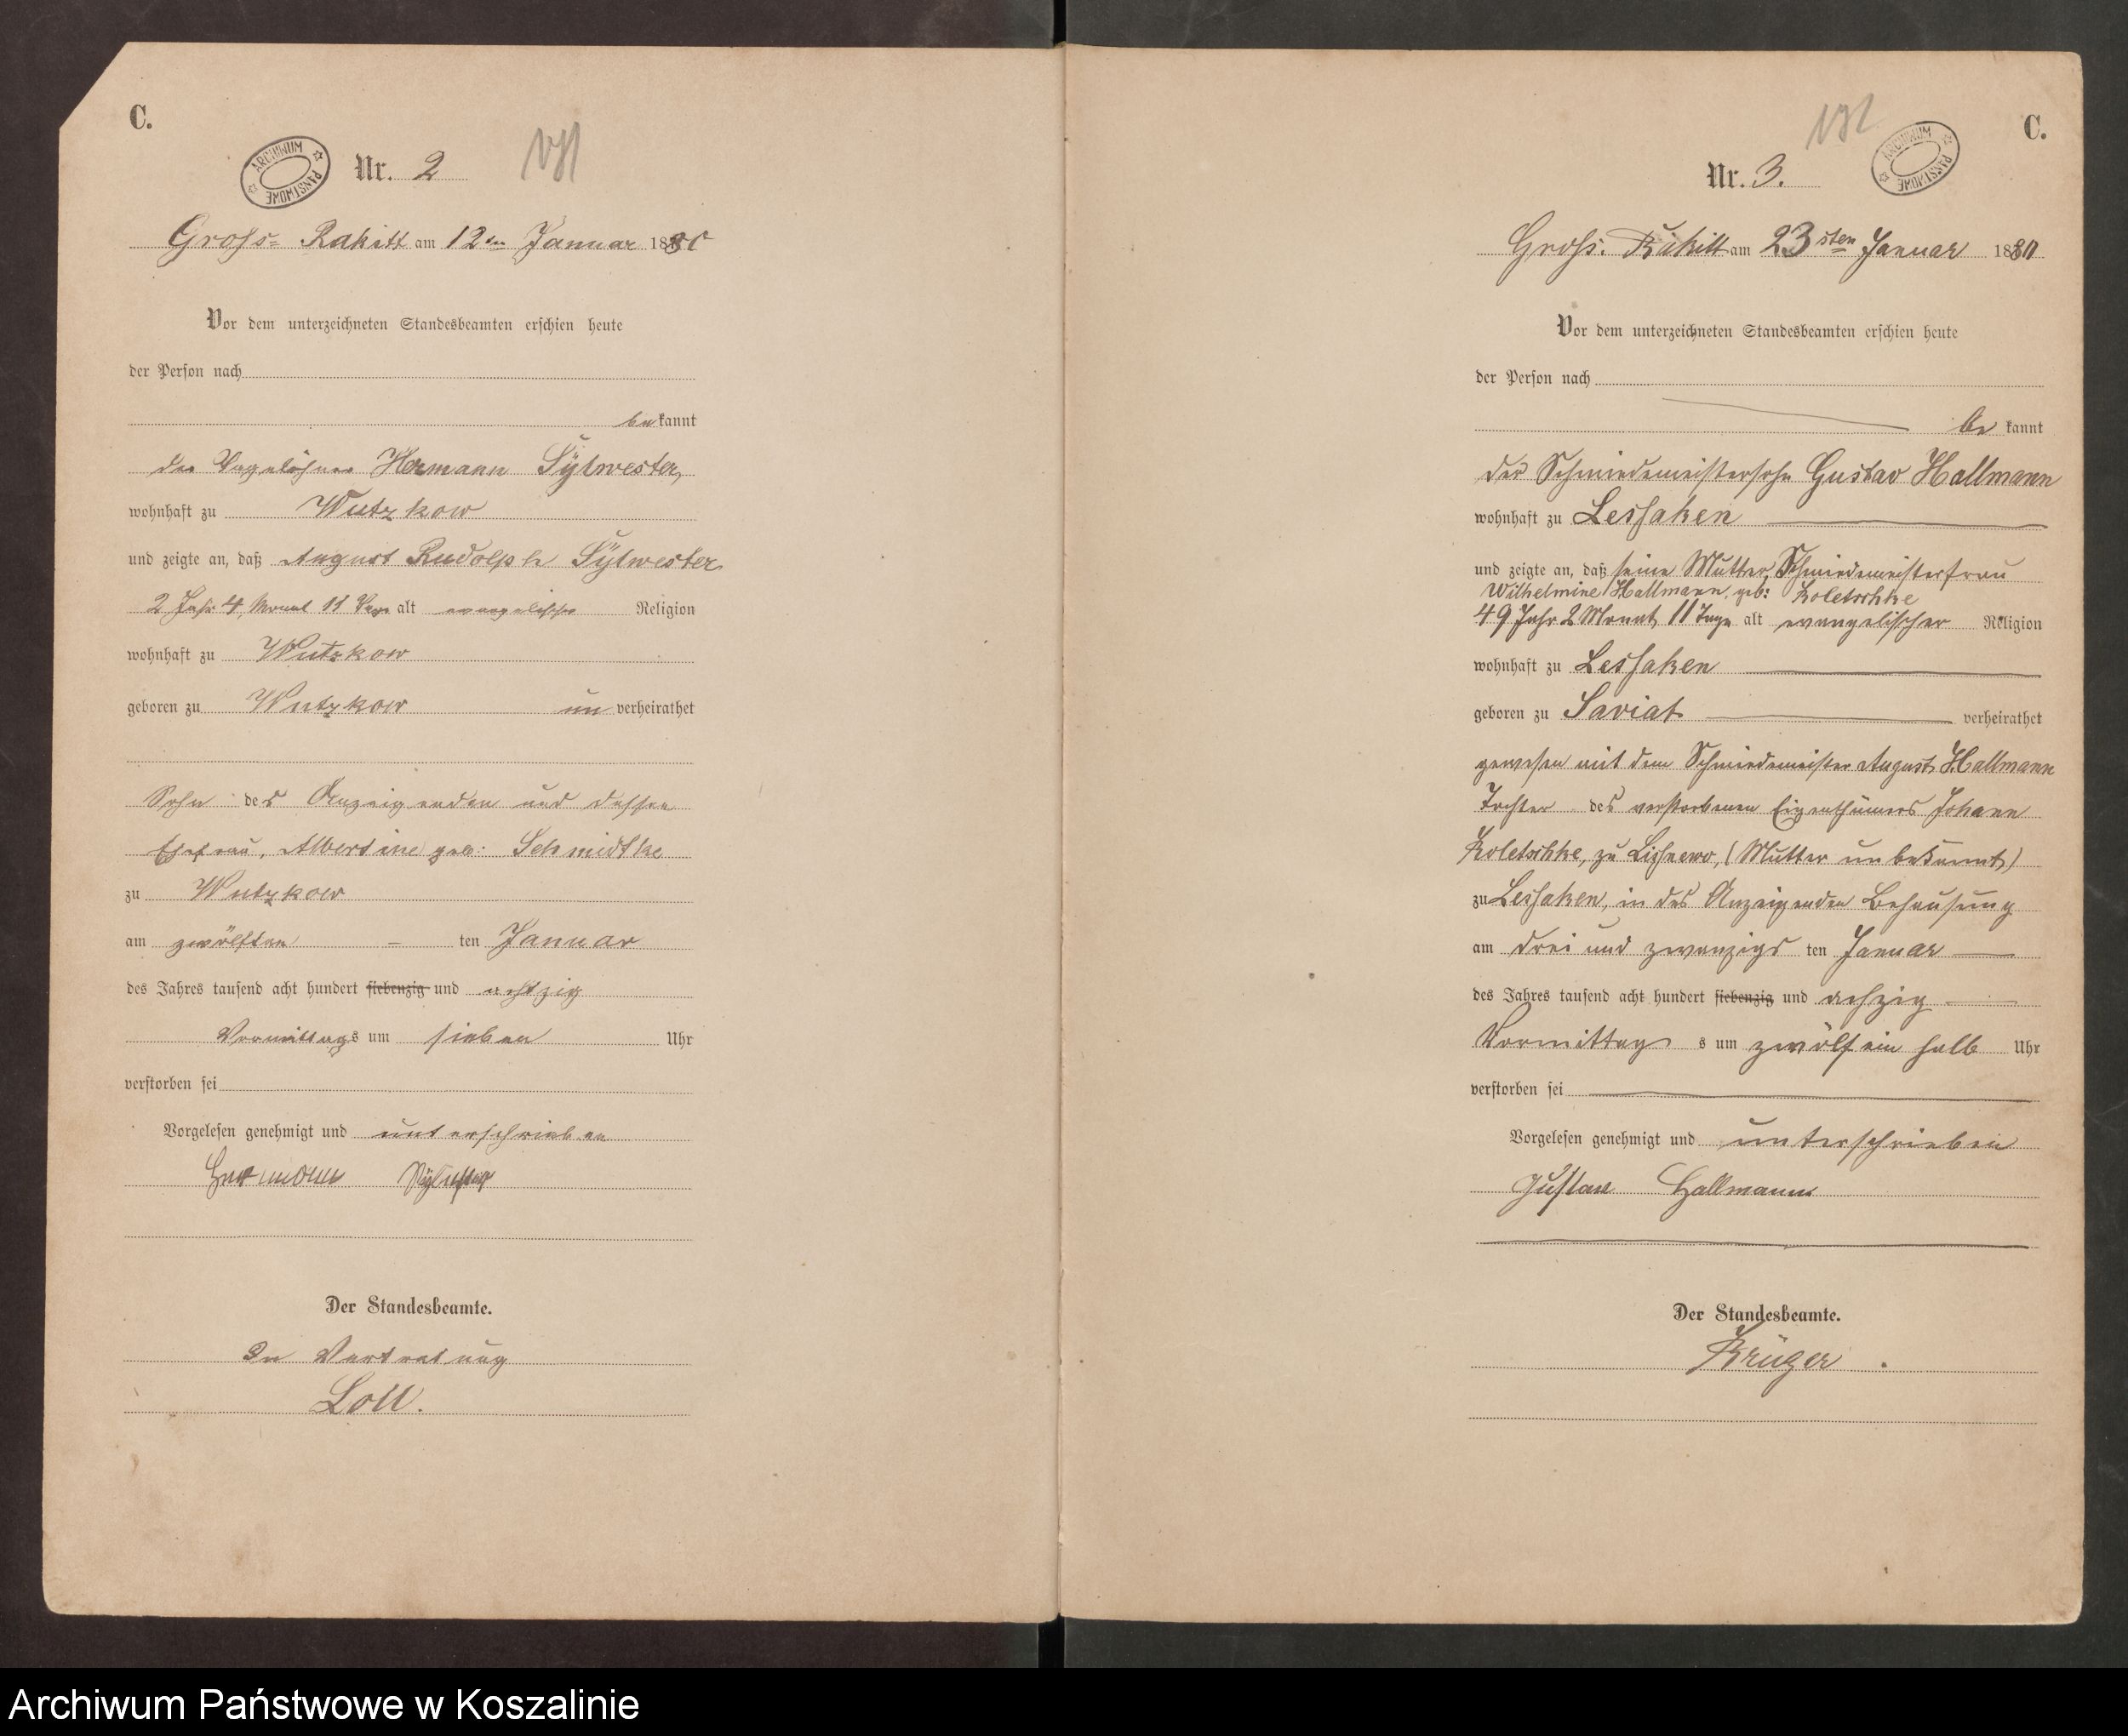 C.
ARCHIWUM PAŃSTWOWE
Nr. 2
Gross= Rakitt am 12ten Januar 1880
Vor dem unterzeichneten Standesbeamten erschien heute
der Person nach
bekannt
der Tagelöhner Hermann Sylwester,
wohnhaft zu Wutzkow
und zeigte an, daß August Rudolph Sylwester
2 Jahr 4 Monat 11 Tage alt evangelischer Religion
wohnhaft zu Wutzkow
geboren zu Wutzkow unverheirathet
Sohn des Anzeigenden und dessen
Ehefrau, Albertine geb: Schmidtke
zu Wutzkow
am zwölften - ten Januar
des Jahres tausend acht hundert siebenzig und achtzig
Vormittags um sieben Uhr
verstorben sei
Vorgelesen genehmigt und unterschrieben
Hermann Sylwester
Der Standesbeamte.
In Vertretung
Loll.
C.
ARCHIWUM PAŃSTWOWE
Nr. 3.
Gross. Rakitt am 23sten Januar 1880
Vor dem unterzeichneten Standesbeamten erschien heute
der Person nach
be kannt
der Schmiedemeistersohn Gustav Hallmann
wohnhaft zu Lessaken
und zeigte an, daß seine Mutter, Schmiedemeisterfrau
Wilhelmine Hallmann, geb: Koletschke
49 Jahr 2 Monat, 11 Tage alt evangelischer Religion
wohnhaft zu Lessaken
geboren zu Saviat verheirathet
gewesen mit dem Schmiedemeister August Hallmann
Tochter des verstorbenen Eigenthümers Johann
Koletschke, zu Lischnewo, (Mutter unbekannt)
zu Lessaken, in des Anzeigenden Behausung
am drei und zwanzigs ten Januar
des Jahres tausend acht hundert siebenzig und achzig
Vormittag s um zwölf ein halb Uhr
verstorben sei
Vorgelesen genehmigt und unterschrieben
Gustav Hallmann
Der Standesbeamte.
Krüger.
Archiwum Państwowe w Koszalinie